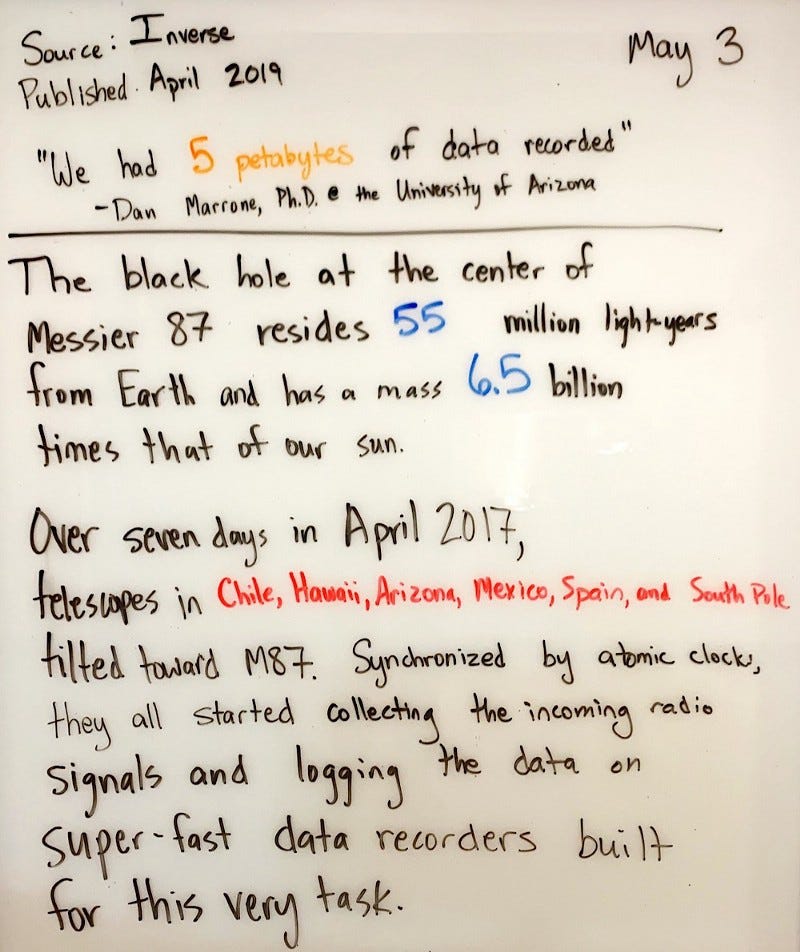 Source: Inverse
May 3
Published. April 2019
"We had 5 petabytes of data recorded"
-Dan Marrone, Ph.D. @ the University of Arizona
The black hole at the center of
Messier 87 resides 55 million light-years
from Earth and has a mass 6.5 billion
times that of our sun.
Over seven days in April 2017,
telescopes in Chile, Hawaii, Arizona, Mexico, Spain, and South Pole
tilted toward M87. Synchronized by atomic clocks,
they all started collecting the incoming radio
signals and logging the data on
super-fast data recorders built
for this very task.